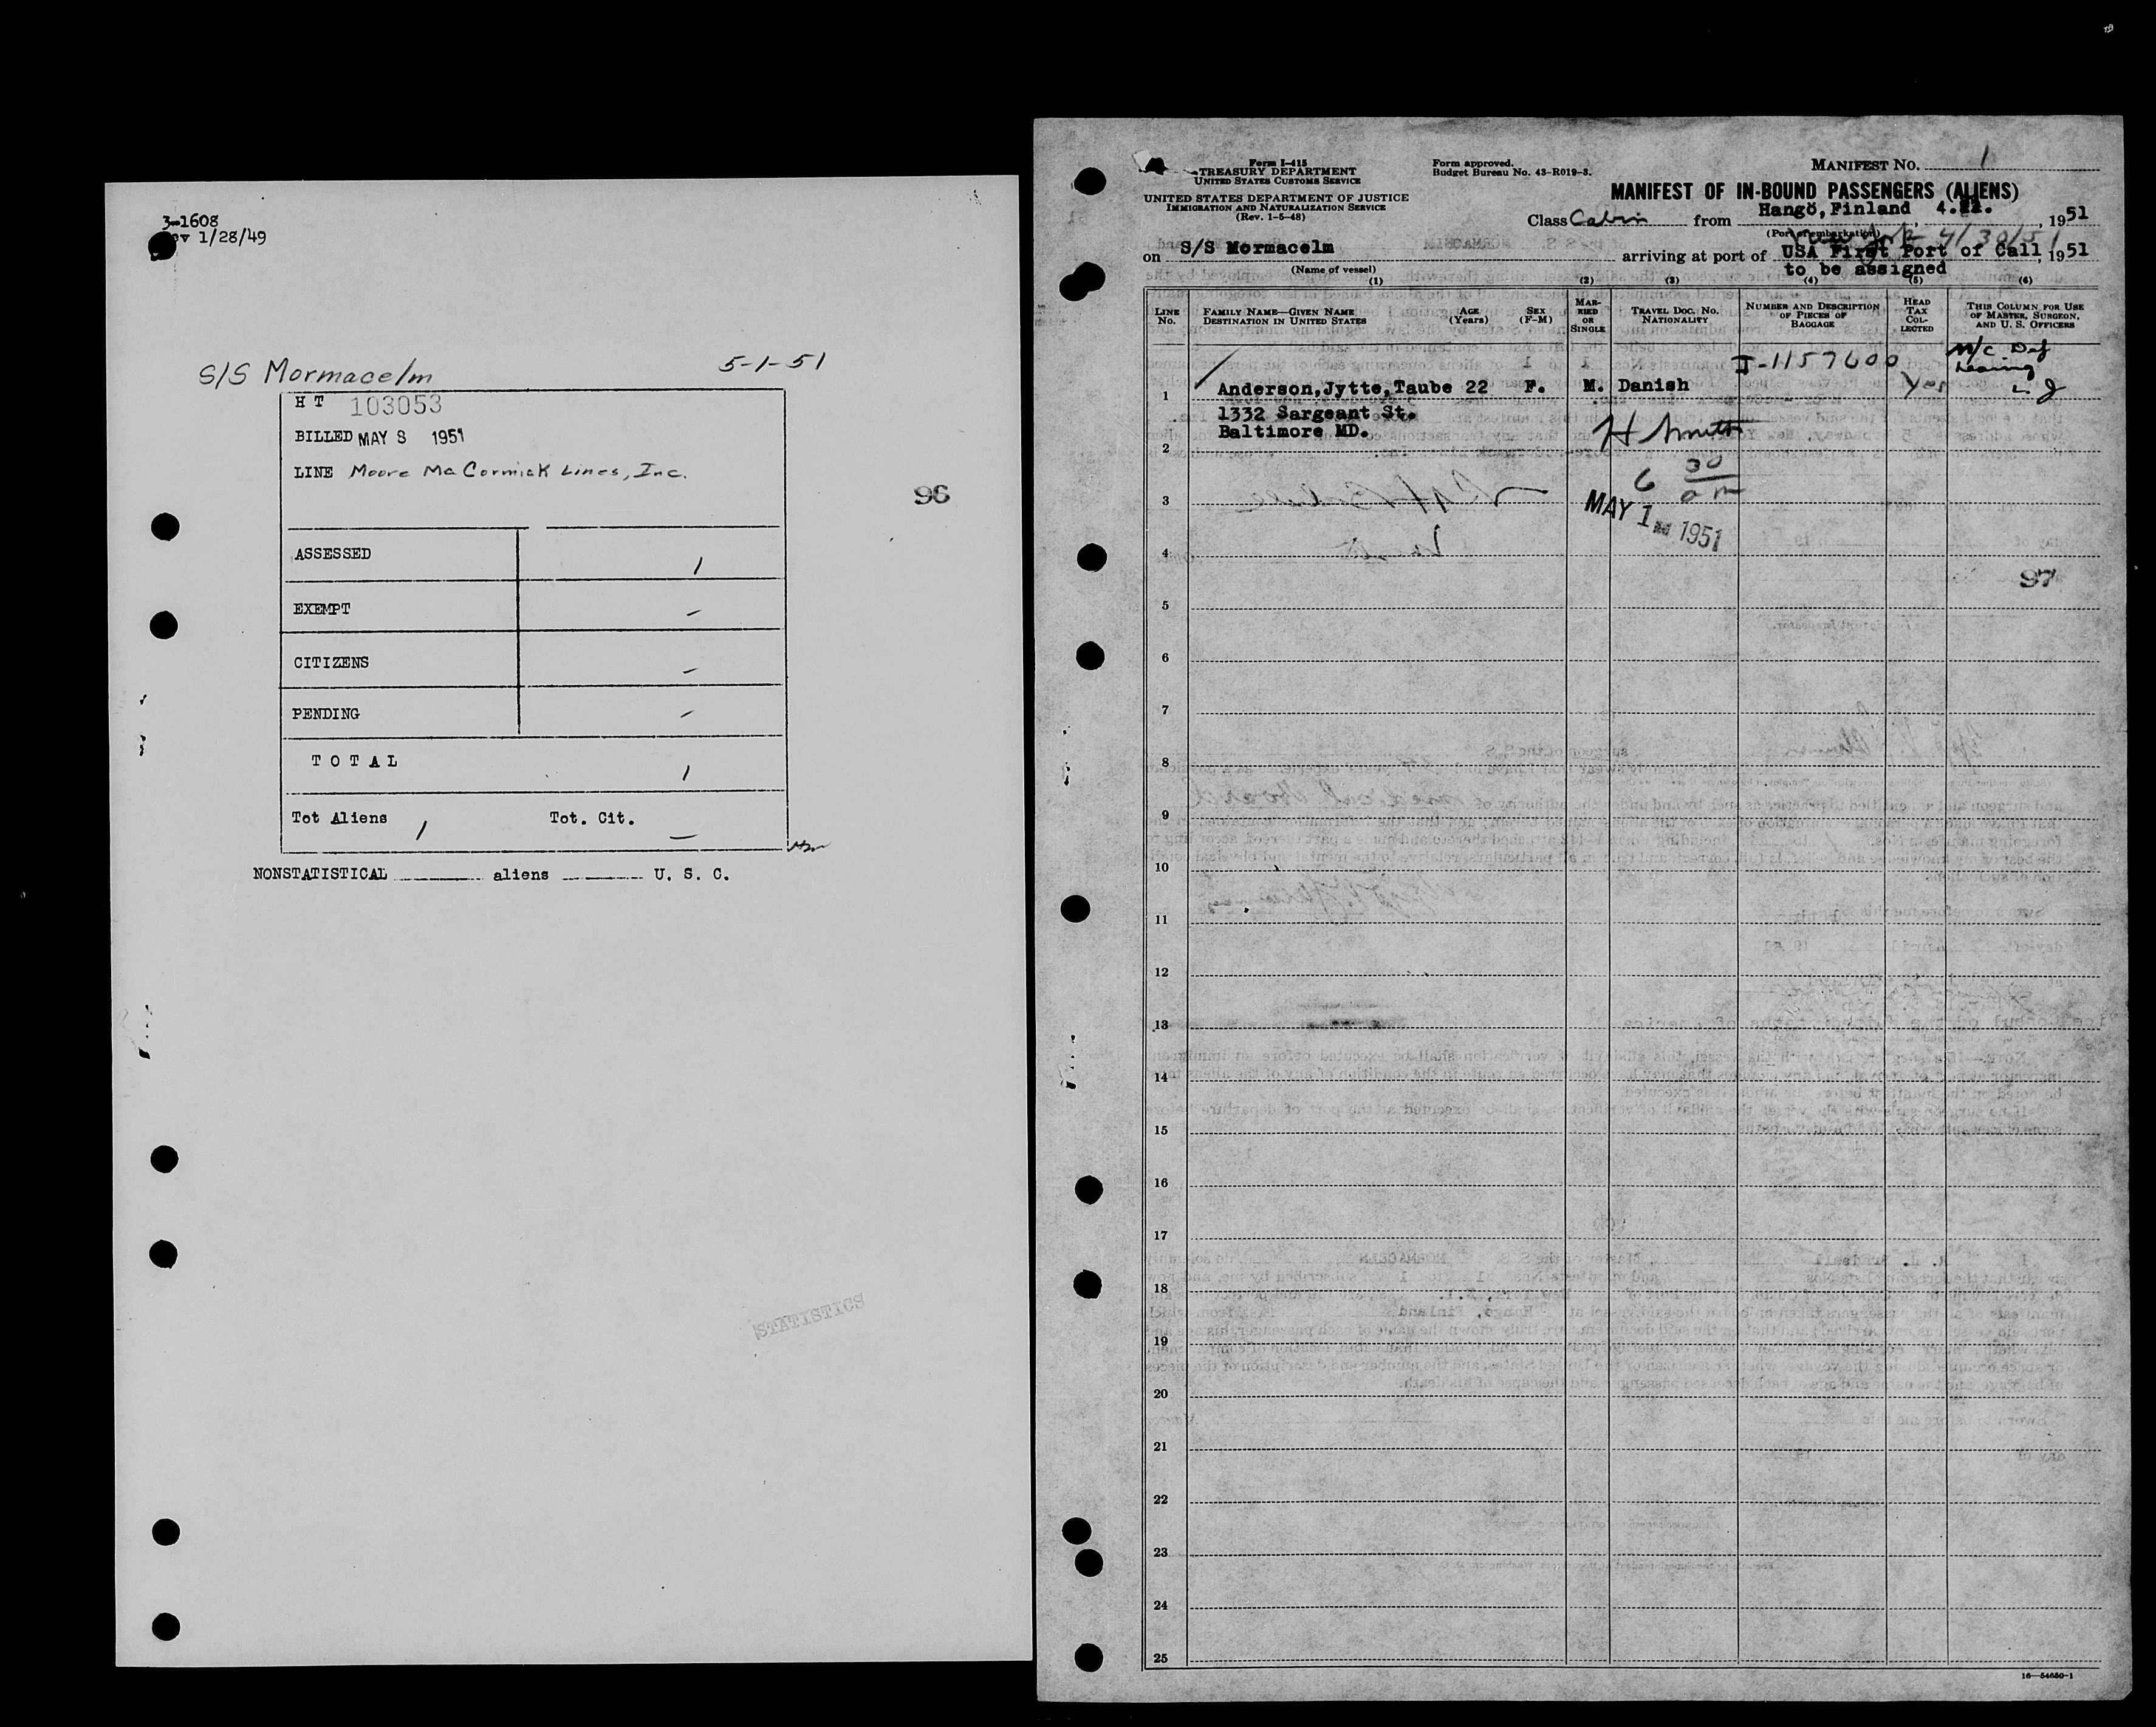 3-1608
1/28/49
S/S Mormacelm 5-1-51
HT 103053
BILLED MAY 8 1951
LINE Moore McCormick Lines, Inc.
96
ASSESSED 1
EXEMPT -
CITIZENS -
PENDING -
TOTAL 1
Tot Aliens 1 Tot. Cit. -
NONSTATISTICAL aliens U. S. C.
STATISTICS
Form I-415
TREASURY DEPARTMENT
UNITED STATES CUSTOMS SERVICE
UNITED STATES DEPARTMENT OF JUSTICE
IMMIGRATION AND NATURALIZATION SERVICE
(Rev. 1-5-48)
Form approved.
Budget Bureau No. 43-R019-3.
MANIFEST NO. 1
MANIFEST OF IN-BOUND PASSENGERS (ALIENS)
Class Cabin from Hangö, Finland 4. , 1951
(Port of embarkation)
New York 4/30/51
on S/S Mormacelm arriving at port of USA First Port of Call, 1951
(Name of vessel) to be assigned
(1) (2) (3) (4) (5) (6)
LINE No. FAMILY NAME—GIVEN NAME DESTINATION IN UNITED STATES AGE (Years) SEX (F-M) MARRIED OR SINGLE TRAVEL DOC. NO. NATIONALITY NUMBER AND DESCRIPTION OF PIECES OF BAGGAGE HEAD TAX COLLECTED THIS COLUMN FOR USE OF MASTER, SURGEON, AND U. S. OFFICERS
I-1157600
1 Anderson,Jytte,Taube 22 F. M. Danish Yes
1332 Sargeant St.
Baltimore MD.
2
6 30 am
3
MAY 1 1951
4
97
5
6
7
8
9
10
11
12
13
14
15
16
17
18
19
20
21
22
23
24
25
16—54650-1